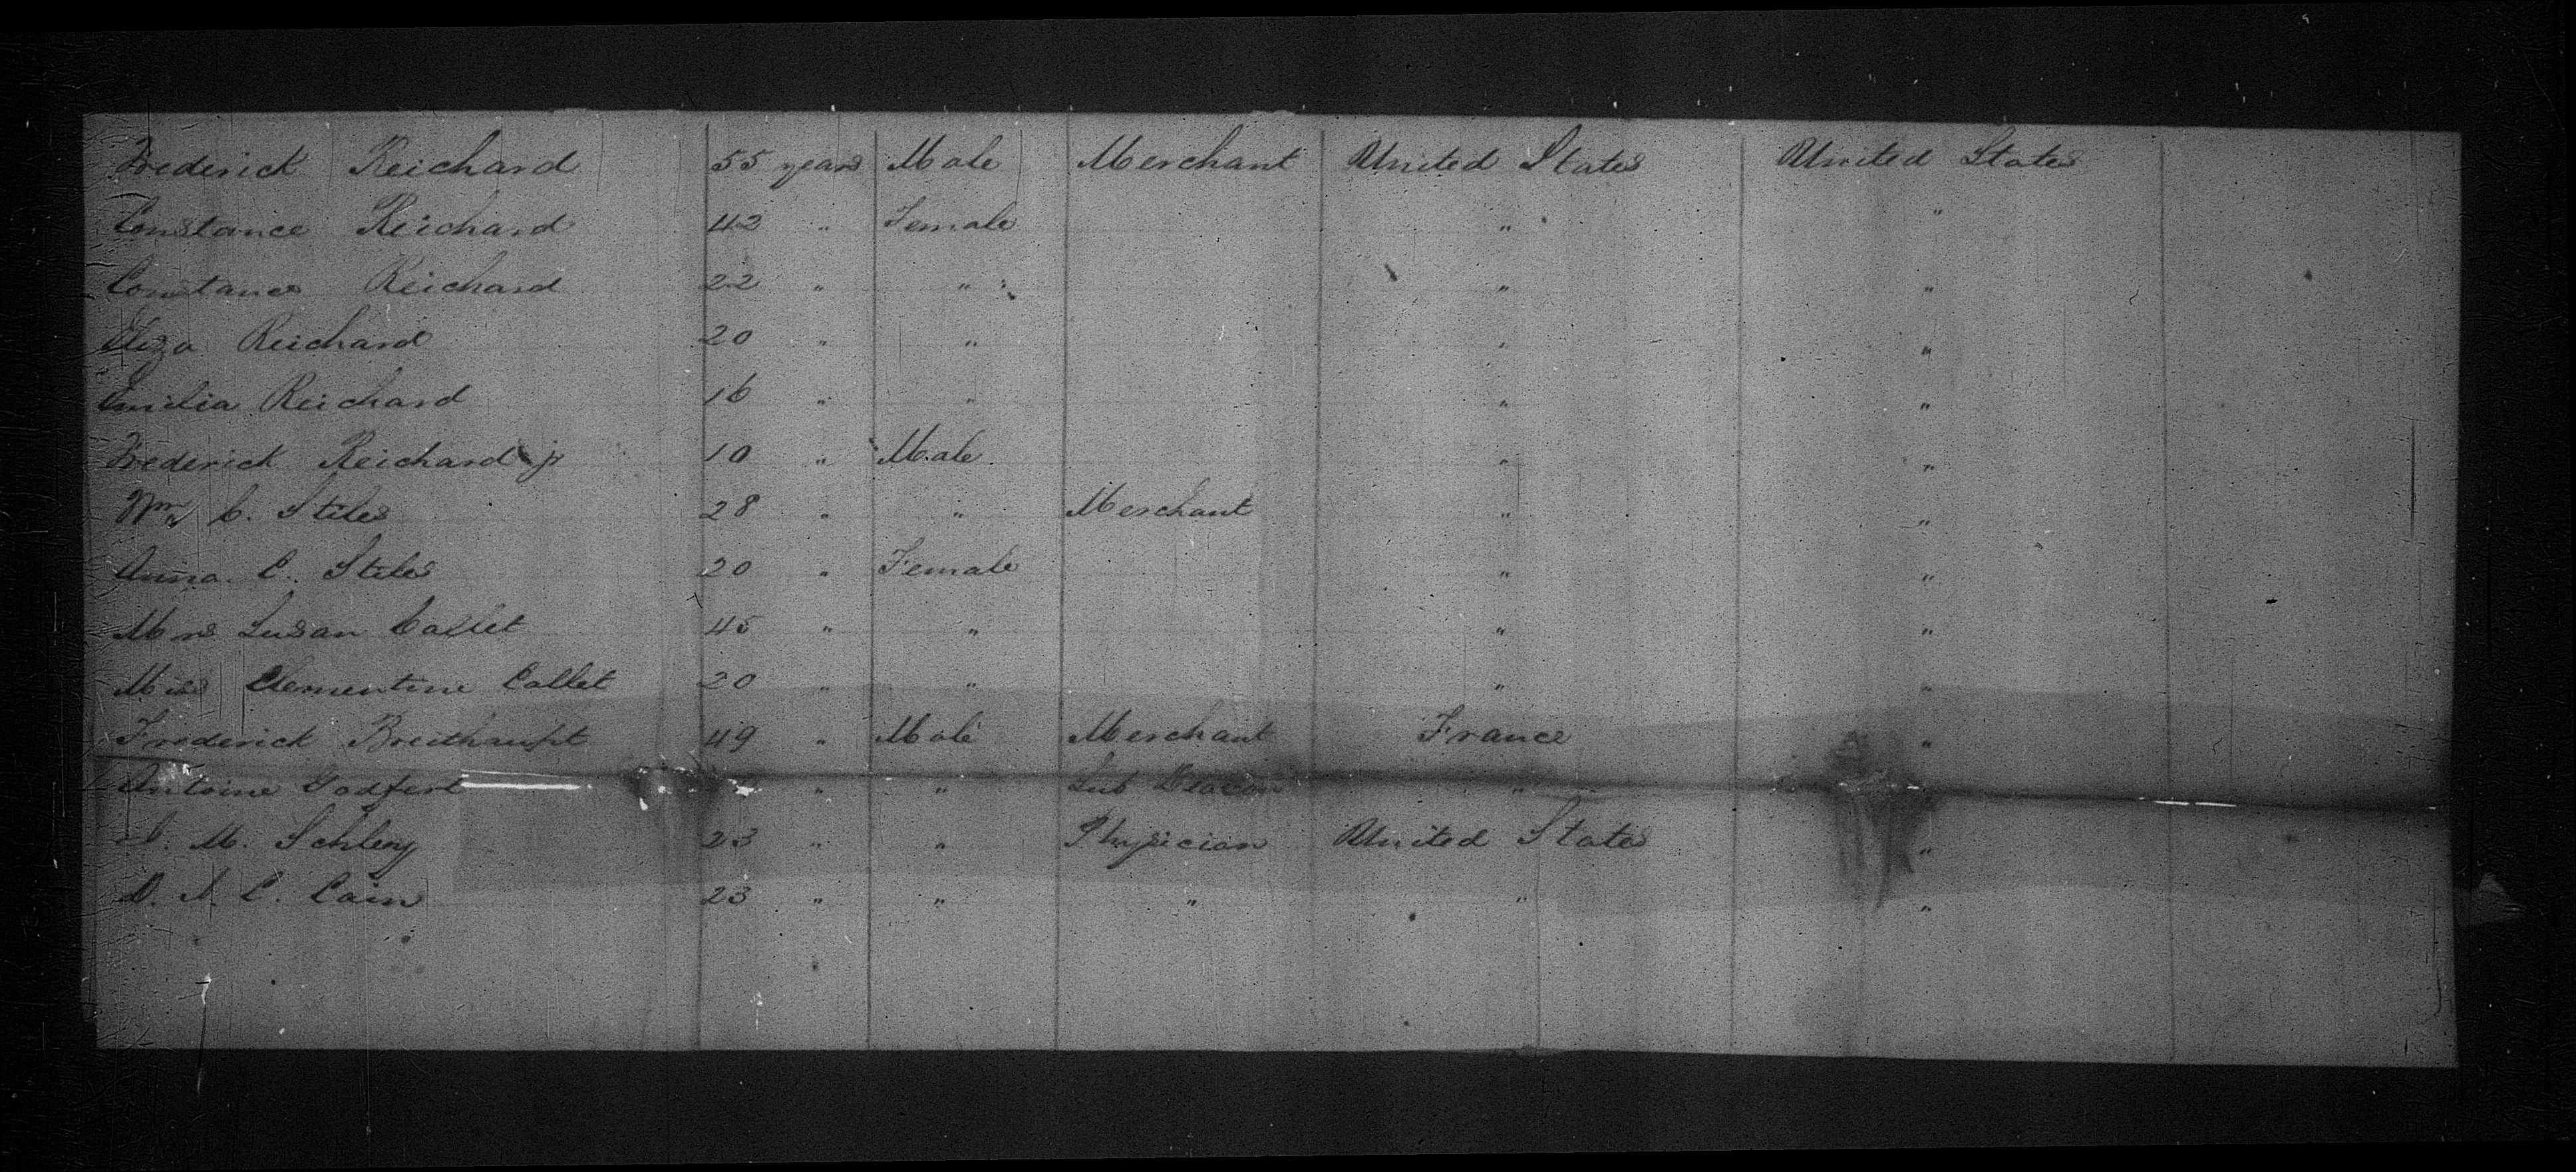 Frederick Reichard 55 years Male Merchant United States United States
Constance Reichard 42 " Female " "
Constance Reichard 22 " " " "
Eliza Reichard 20 " " " "
Emilia Reichard 16 " " " "
Frederick Reichard jr 10 " Male " "
Wm C. Stiles 28 " " Merchant " "
Anna C. Stiles 20 " Female " "
Mrs Susan Collet 45 " " " "
Miss Clementine Collet 20 " " " "
Frederick Breithaupt 49 " Male Merchant France "
Antoine " " Sub Deacon "
M. Schley 23 " " Physician United States "
D. C. Cain 23 " " " " "